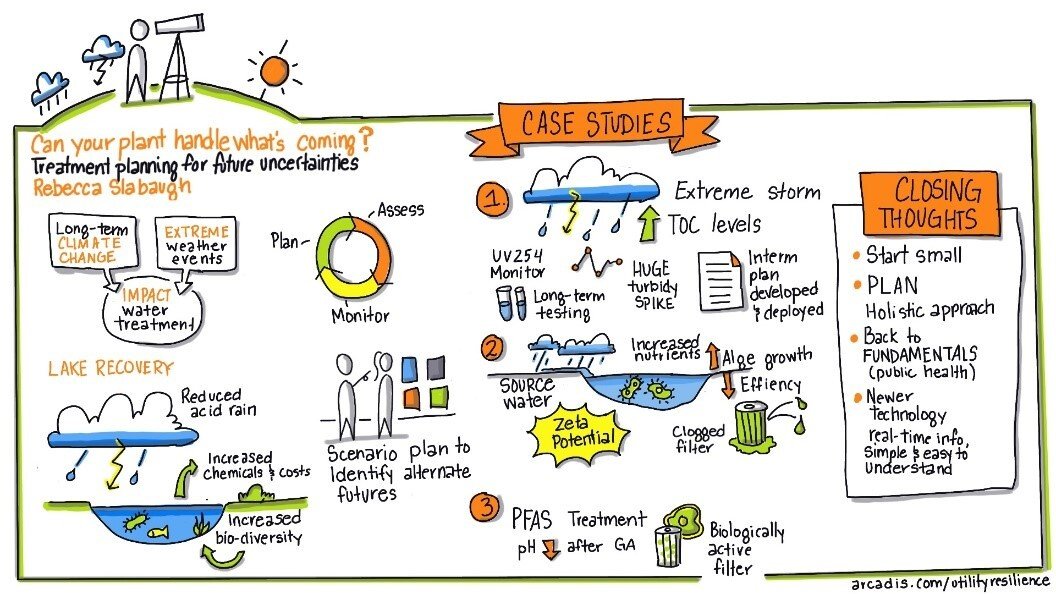 Can your plant handle what's coming?
Treatment planning for future uncertainties
Rebecca Slabaugh
Long-term
CLIMATE
CHANGE
EXTREME
weather
events
IMPACT
water
treatment
Assess
Plan
Monitor
LAKE RECOVERY
Reduced
acid rain
Increased
chemicals & costs
Increased
bio-diversity
Scenario plan to
Identify alternate
futures
CASE STUDIES
1.
Extreme storm
TOC levels
UV254
Monitor
Long-term
testing
HUGE
turbidy
SPIKE
Interm
plan
developed
& deployed
2
Increased
nutrients
Alge growth
Effiency
SOURCE
water
Zeta
Potential
Clogged
filter
3
PFAS Treatment
pH after GA
Biologically
active
filter
CLOSING
THOUGHTS
• Start small
• PLAN
Holistic approach
• Back to
FUNDAMENTALS
(public health)
• Newer
technology
real-time info,
Simple & easy to
understand
arcadis.com/utilityresilience